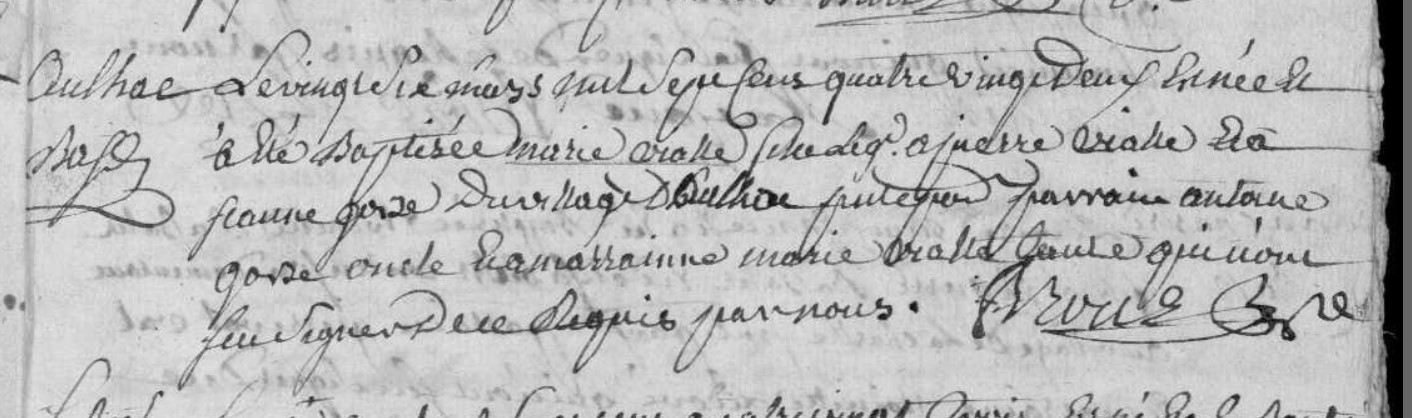 Aulhac Le vingt Six mars mil Sept Cens quatre vingt Deux Est née et
Bap a été Baptisée marie vialle fille leg. a pierre vialle et a
jeanne gorse Du village D'Aulhac parrain antoine
gorse oncle et a marrainne marie vialle tante qui n'ont
Su Signer De ce Requis par nous.